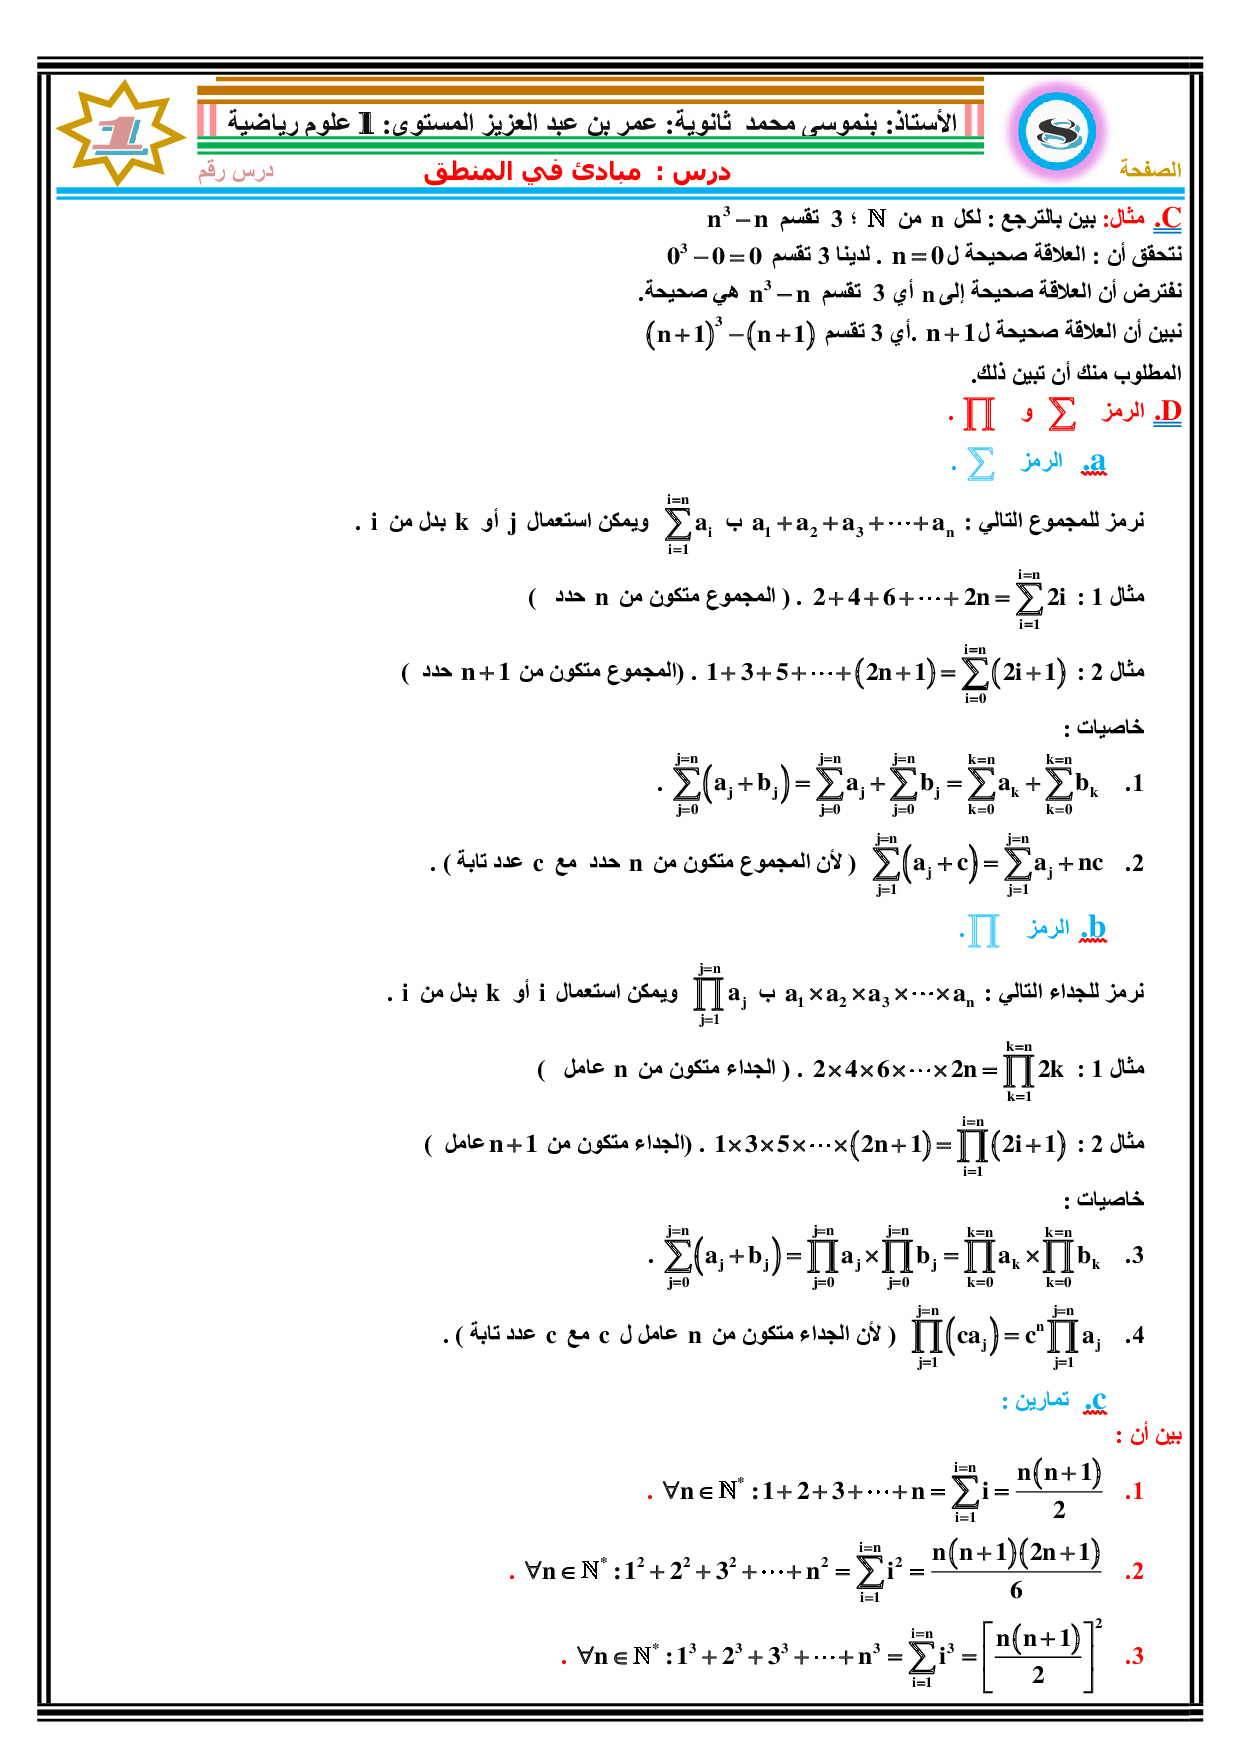 الأستاذ: بنموسى محمد ثانوية: عمر بن عبد العزيز المستوى: 1 علوم رياضية
1
S
الصفحة
درس : مبادئ في المنطق
درس رقم
C. مثال: بين بالترجع : لكل n من ℕ ؛ 3 تقسم n³ − n
نتحقق أن : العلاقة صحيحة ل n = 0 . لدينا 3 تقسم 0³ − 0 = 0
نفترض أن العلاقة صحيحة إلى n أي 3 تقسم n³ − n هي صحيحة.
نبين أن العلاقة صحيحة ل n + 1 .أي 3 تقسم (n+1)³ − (n+1)
المطلوب منك أن تبين ذلك.
D. الرمز ∑ و ∏ .
a. الرمز ∑ .
نرمز للمجموع التالي : a₁ + a₂ + a₃ + ⋯ + aₙ ب ∑_{i=1}^{i=n} a_i ويمكن استعمال j أو k بدل من i .
مثال 1 : 2 + 4 + 6 + ⋯ + 2n = ∑_{i=1}^{i=n} 2i . ( المجموع متكون من n حدد )
مثال 2 : 1 + 3 + 5 + ⋯ + (2n + 1) = ∑_{i=0}^{i=n} (2i + 1) . (المجموع متكون من n + 1 حدد )
خاصيات :
1. ∑_{j=0}^{j=n} (a_j + b_j) = ∑_{j=0}^{j=n} a_j + ∑_{j=0}^{j=n} b_j = ∑_{k=0}^{k=n} a_k + ∑_{k=0}^{k=n} b_k .
2. ∑_{j=1}^{j=n} (a_j + c) = ∑_{j=1}^{j=n} a_j + nc ( لأن المجموع متكون من n حدد مع c عدد تابة ) .
b. الرمز ∏ .
نرمز للجداء التالي : a₁ × a₂ × a₃ × ⋯ × aₙ ب ∏_{j=1}^{j=n} a_j ويمكن استعمال i أو k بدل من i .
مثال 1 : 2 × 4 × 6 × ⋯ × 2n = ∏_{k=1}^{k=n} 2k . ( الجداء متكون من n عامل )
مثال 2 : 1 × 3 × 5 × ⋯ × (2n + 1) = ∏_{i=1}^{i=n} (2i + 1) . (الجداء متكون من n + 1 عامل )
خاصيات :
3. ∑_{j=0}^{j=n} (a_j + b_j) = ∏_{j=0}^{j=n} a_j × ∏_{j=0}^{j=n} b_j = ∏_{k=0}^{k=n} a_k × ∏_{k=0}^{k=n} b_k .
4. ∏_{j=1}^{j=n} (ca_j) = cⁿ ∏_{j=1}^{j=n} a_j ( لأن الجداء متكون من n عامل ل c مع c عدد تابة ) .
c. تمارين :
بين أن :
1. ∀n ∈ ℕ* : 1 + 2 + 3 + ⋯ + n = ∑_{i=1}^{i=n} i = n(n + 1)/2 .
2. ∀n ∈ ℕ* : 1² + 2² + 3² + ⋯ + n² = ∑_{i=1}^{i=n} i² = n(n + 1)(2n + 1)/6 .
3. ∀n ∈ ℕ* : 1³ + 2³ + 3³ + ⋯ + n³ = ∑_{i=1}^{i=n} i³ = [n(n + 1)/2]² .